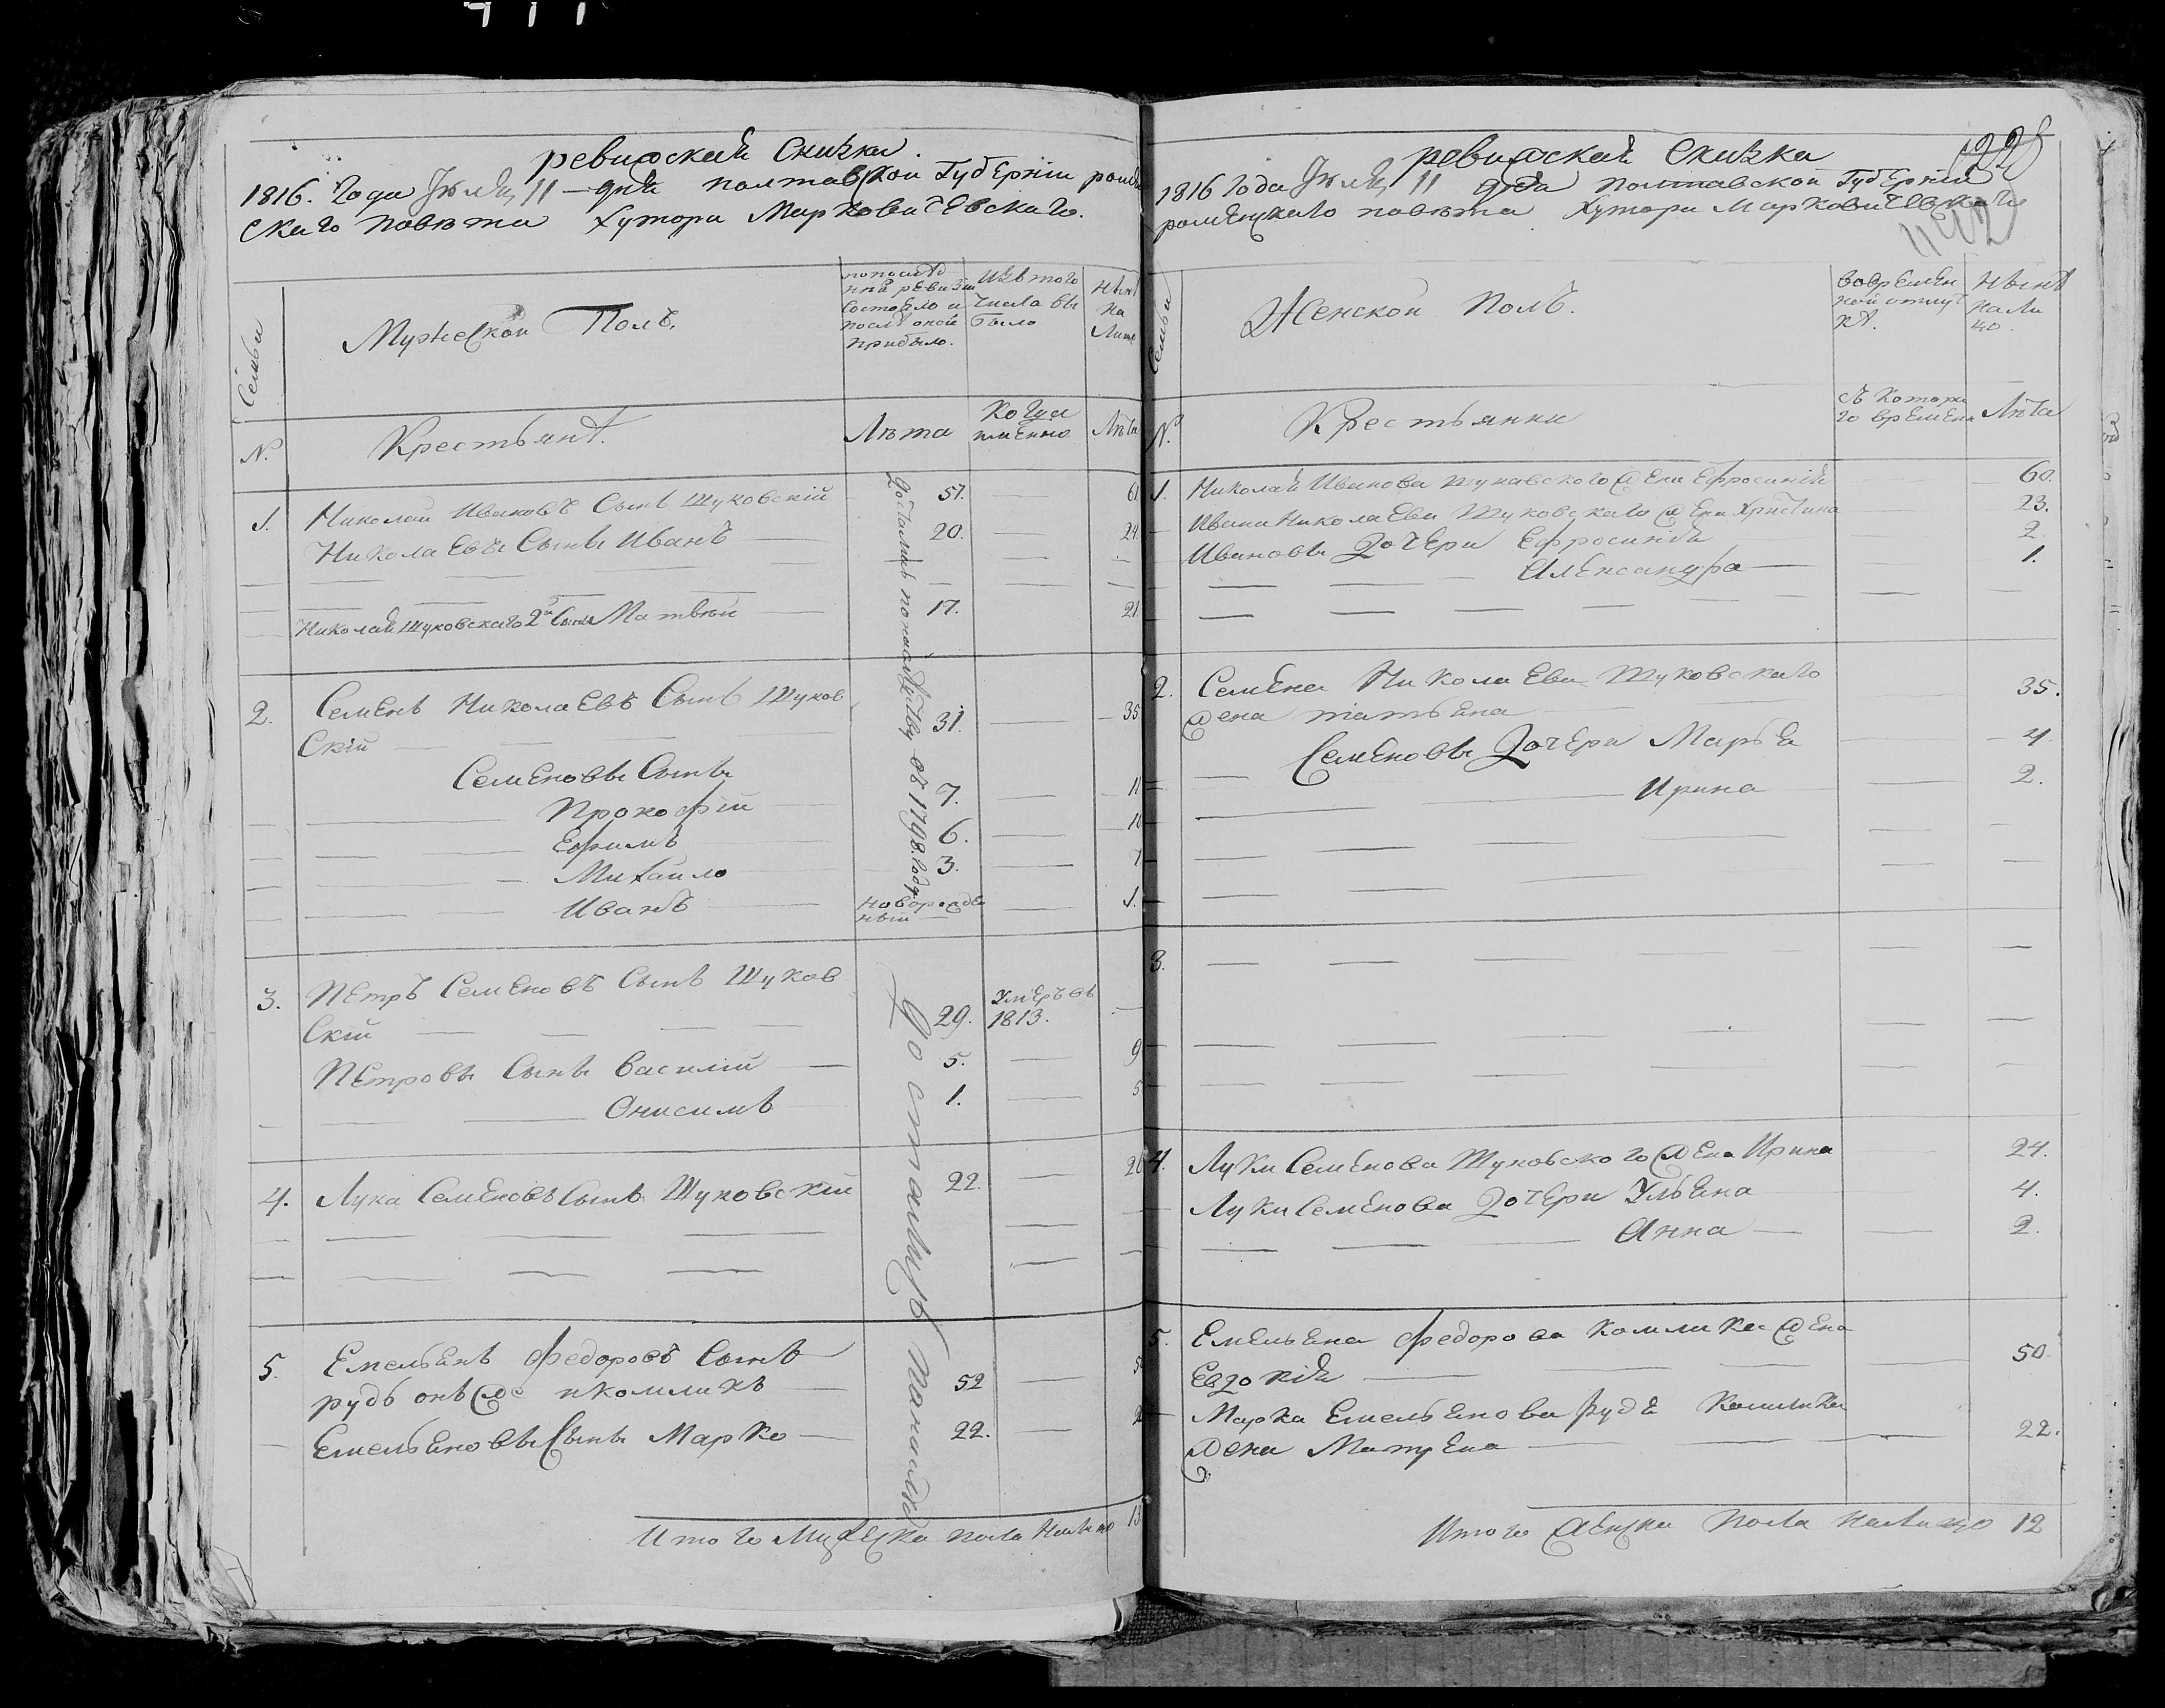 ревизская Сказка.
1816. Года Іюля 11 дня полтавской Губерніи ромен
скаго повѣта хутора Марковичевскаго.
Семьи
Мужеской Полъ.
по послѣд
ней ревизіи
состояло и
послѣ оной
прибыло.
Изъ того
числа вы
было
Нынѣ
на
Лице
№.
Крестьянѣ.
Лѣта
Когда
именно
Лѣта
1. Николай Ивановъ Сынъ Шуковскій 57. 61
Николаевъ Сынъ Иванъ 20. 24.
Николая Шуковскаго 2й Сынъ Матвѣй 17. 21.
2. Семенъ Николаевъ Сынъ Шуков
скій 31. 35
Семеновы Сынъ
Прокофій 7. 11
Ефимъ 6. 10
Михайло 3. 7
Иванъ новорожде
ный 1.
3. Петръ Семеновъ Сынъ Шуков
скій 29. Умеръ въ
1813.
Петровы Сынъ Василій 5. 9
Онисимъ 1. 5
4. Лука Семеновъ Сынъ Шуковскій 22. 26
5. Емельянъ Федоровъ Сынъ
рудь онъ же и комлыкъ 52
Емельяновы Сынъ Марко 22.
Достались по наслѣдству въ 1798. Году
Достались
Итого Мужеска пола налицо 13
ревизская Сказка
228
1816 Года Іюля 11 дня Полтавской Губерніи
роменскаго повѣта Хутора Марковичевскаго
Семьи
Женской Полъ.
Во времен
ной отлуч
кѣ.
Нынѣ
на Ли
цо.
№
Крестьянки
Съ котора
го времени
Лѣта
1. Николая Иванова Шуковского жена Ефросинія 60.
Ивана Николаева Шуковскаго жена Христина 23.
Ивановы Дочери Ефросинія 2
Александра 1.
2. Семена Николаева Шуковскаго
жена татьяна 35.
Семеновы Дочери Марья 4
Ирина 2.
3.
4. Луки Семенова Шуковского жена Ирина 24.
Луки Семенова Дочери Ульяна 4.
Анна 2.
5. Емельяна Федорова комлика жена
Евдокія 50.
Марка Емельянова Рудя Комлика
жена Матрена 22.
Итого женска Пола налицо 12